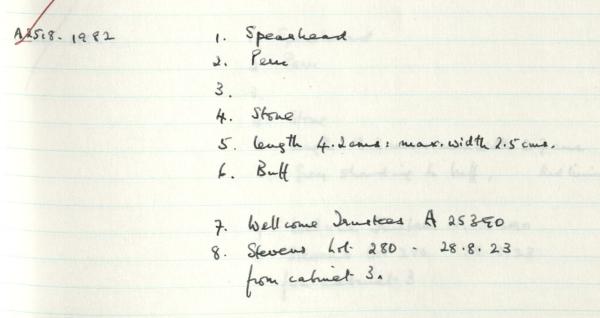 A258.1982 1. Spearhead
2. Peru
3.
4. Stone
5. length 4.2cms: max. width 2.5 cms.
6. Buff
7. Wellcome Trustees A 25390
8. Stevens Lot. 280 - 28.8.23
from cabinet 3.